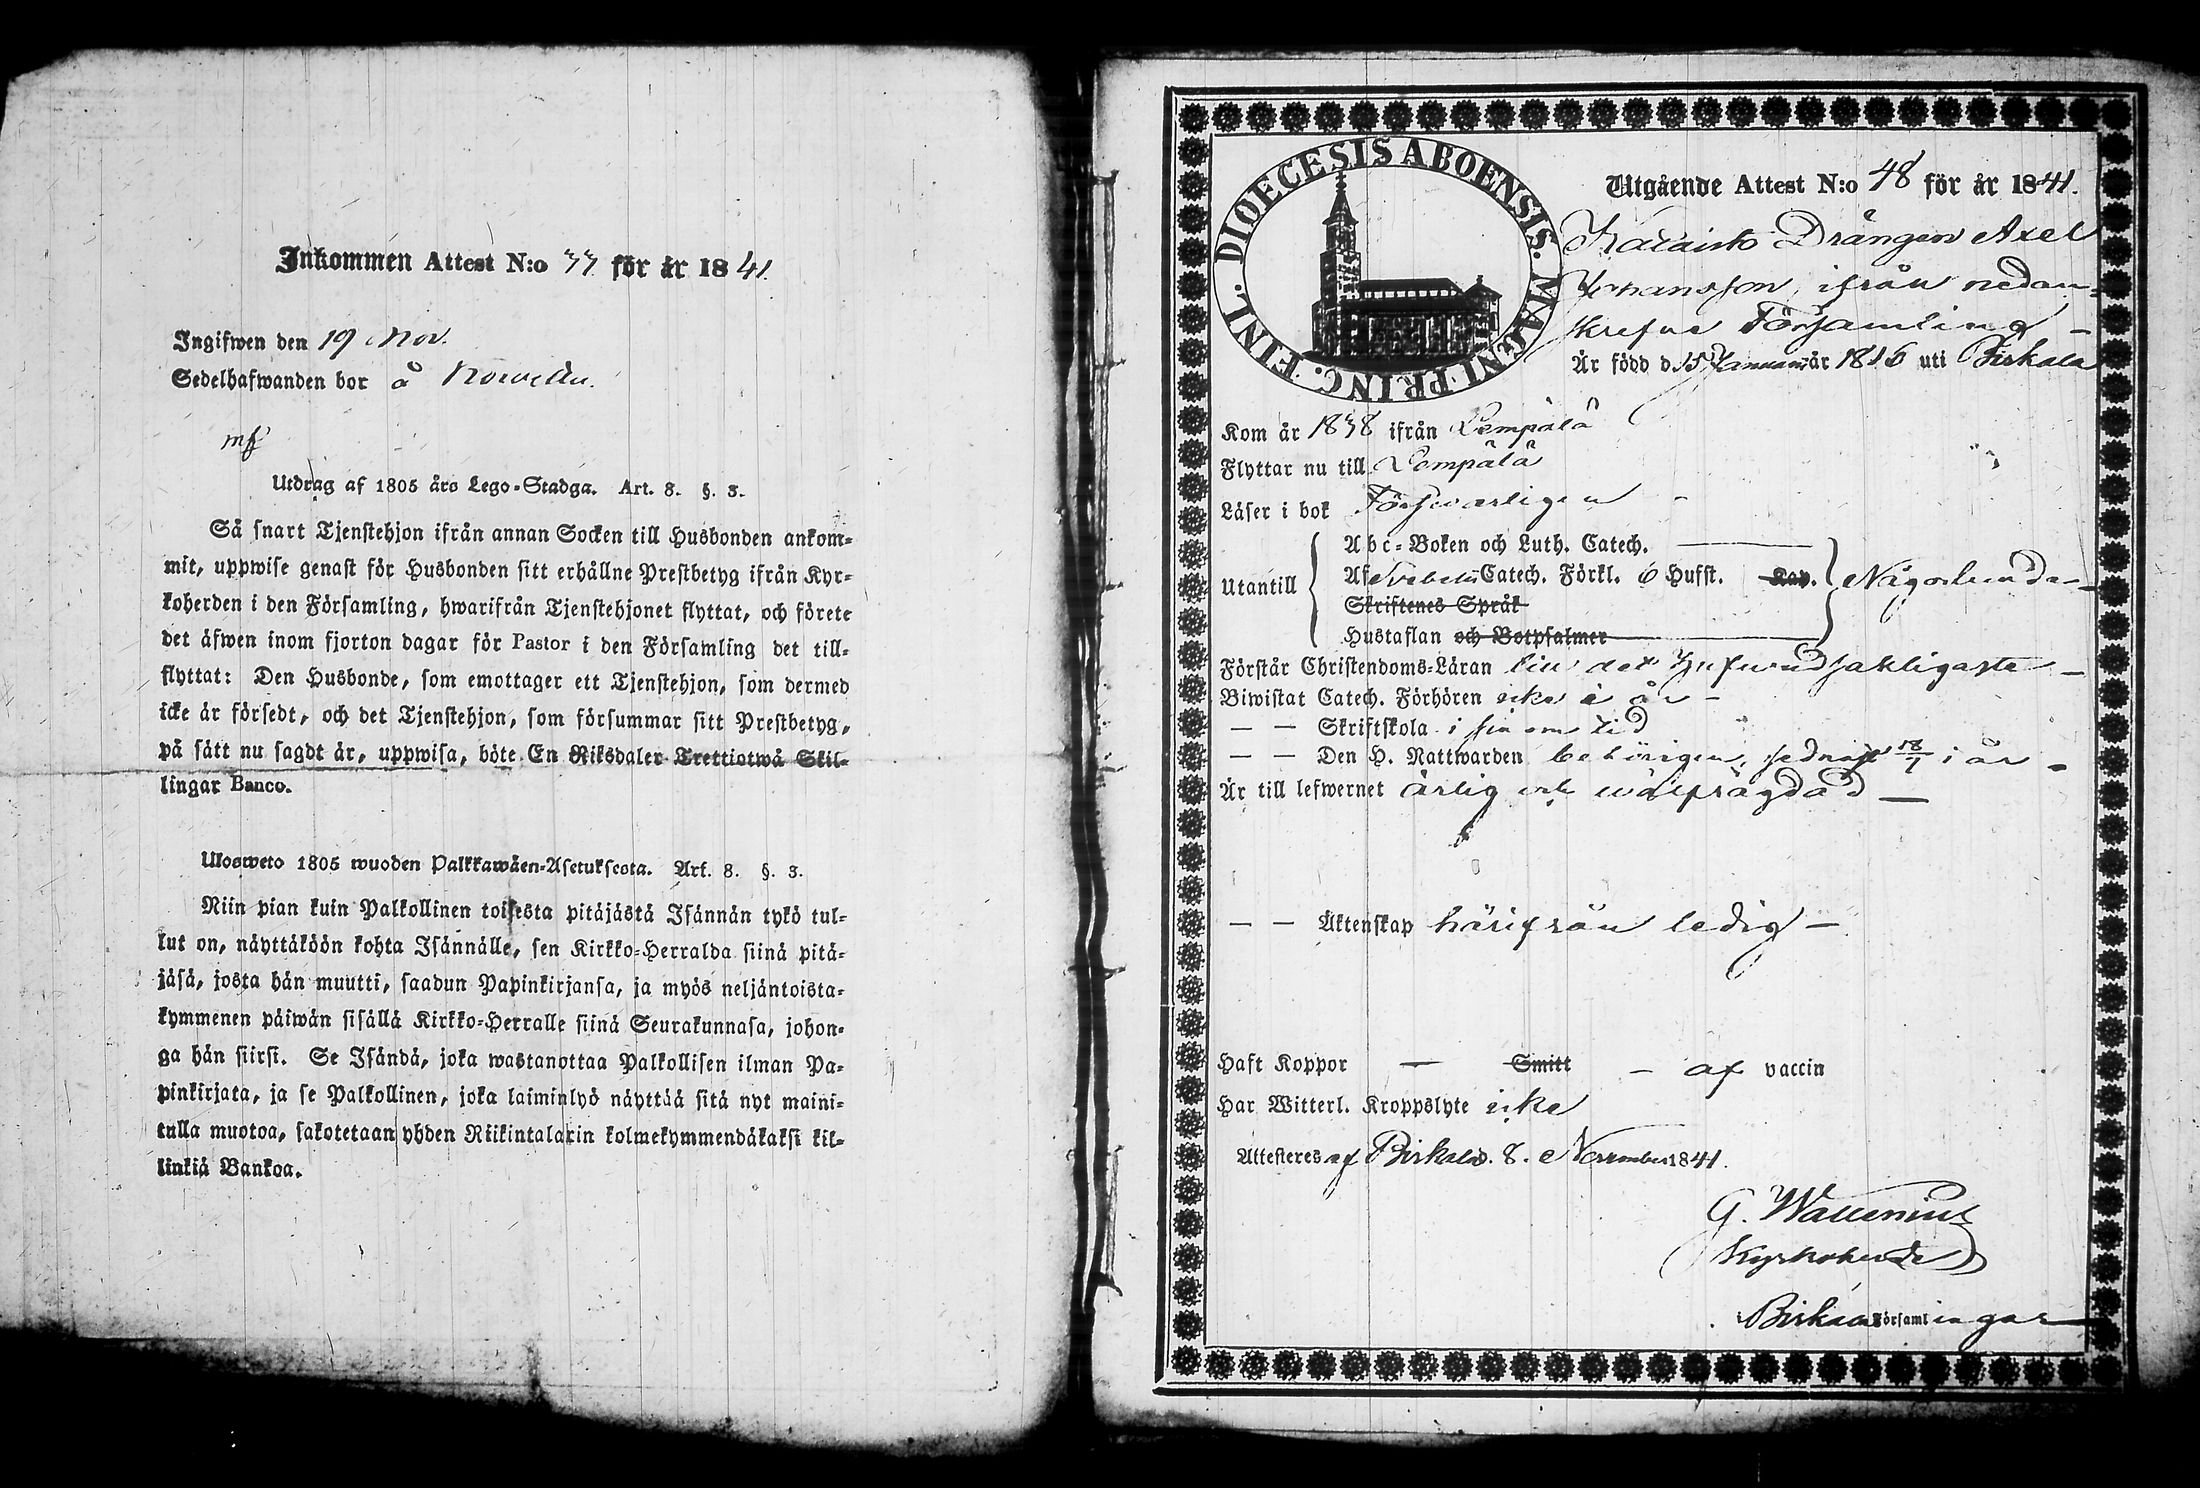 Inkommen Attest N:o 33 för år 1841.
Ingifwen den 19 Nov.
Sedelhafwanden bor å
Utdrag af 1805 års Lego-Stadga. Art. 8. §. 3.
Så snart Tjenstehjon ifrån annan Socken till Husbonden ankom-
mit, uppwise genast för Husbonden sitt erhållne Prestbetyg ifrån Kyr-
koherden i den Församling, hwarifrån Tjenstehjonet flyttat, och förete
det äfwen inom fjorton dagar för Pastor i den Församling det till-
flyttat: Den Husbonde, som emottager ett Tjenstehjon, som dermed
icke är försedt, och det Tjenstehjon, som försummar sitt Prestbetyg,
på sätt nu sagdt är, uppwisa, böte En Riksdaler Trettiotwå Skil-
lingar Banco.
Ulosweto 1805 wuoden Palkkawäen-Asetuksesta. Art. 8. §. 3.
Niin pian kuin Palkollinen toisesta pitäjästä Isännän tykö tul-
lut on, näyttäköön kohta Isännälle, sen Kirkko-Herralda siinä pitä-
jäsä, josta hän muutti, saadun Papinkirjansa, ja myös neljäntoista-
kymmenen päiwän sisällä Kirkko-Herralle siinä Seurakunnasa, johon-
ga hän siirsi. Se Isändä, joka wastanottaa Palkollisen ilman Pa-
pinkirjata, ja se Palkollinen, joka laiminlyö näyttää sitä nyt maini-
tulla muotoa, sakotetaan yhden Riikintalarin kolmekymmendäkaksi kil-
linkiä Bankoa.
DIOECESIS ABOENSIS. MAGNI PRINC. FINL.
Utgående Attest N:o 48 för år 1841.
Drängen Axel
Johansson, ifrån nedan-
skrefne Församling
Är född d. 15 Januari år 1816 uti Birkala
Kom år 1838 ifrån Lempälä
Flyttar nu till Lempälä
Läser i bok Förswarligen
Utantill
Abc-Boken och Luth. Catech.
Af Svebelii Catech. Förkl. 6 Hufst. Kap. Någorlunda
Skriftenes Språk
Hustaflan och Botpsalmer
Förstår Christendoms-Läran till det Hufwudsakligaste
Biwistat Catech. Förhören icke i år
— — Skriftskola i sin om tid
— — Den H. Nattwarden behörigen, sednast 18/7 i år
Är till lefwernet ärlig och wälfrägdad
— — Äktenskap härifrån ledig
Haft Koppor — Smitt — af vaccin
Har Witterl. Kroppslyte icke
Attesteres af Birkala d. 8. November 1841.
G. Wallenius
Kyrkoherde
i Birkala Församlingar